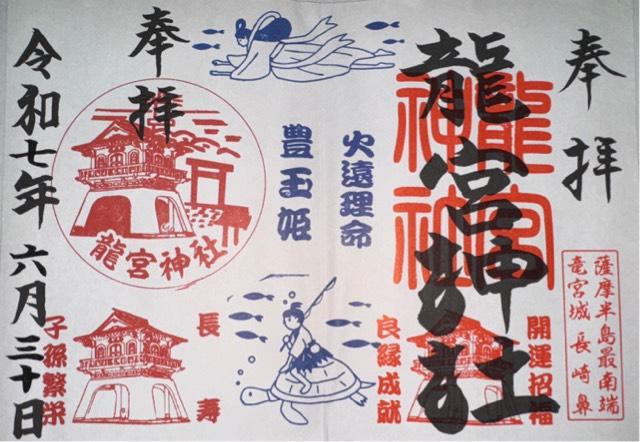 奉拝
龍宮神社
龍宮
神社
薩摩半島最南端
竜宮城 長崎鼻
開運招福
良縁成就
火遠理命
豊玉姫
奉拝
龍宮神社
長寿
子孫繁栄
令和七年 六月三十日